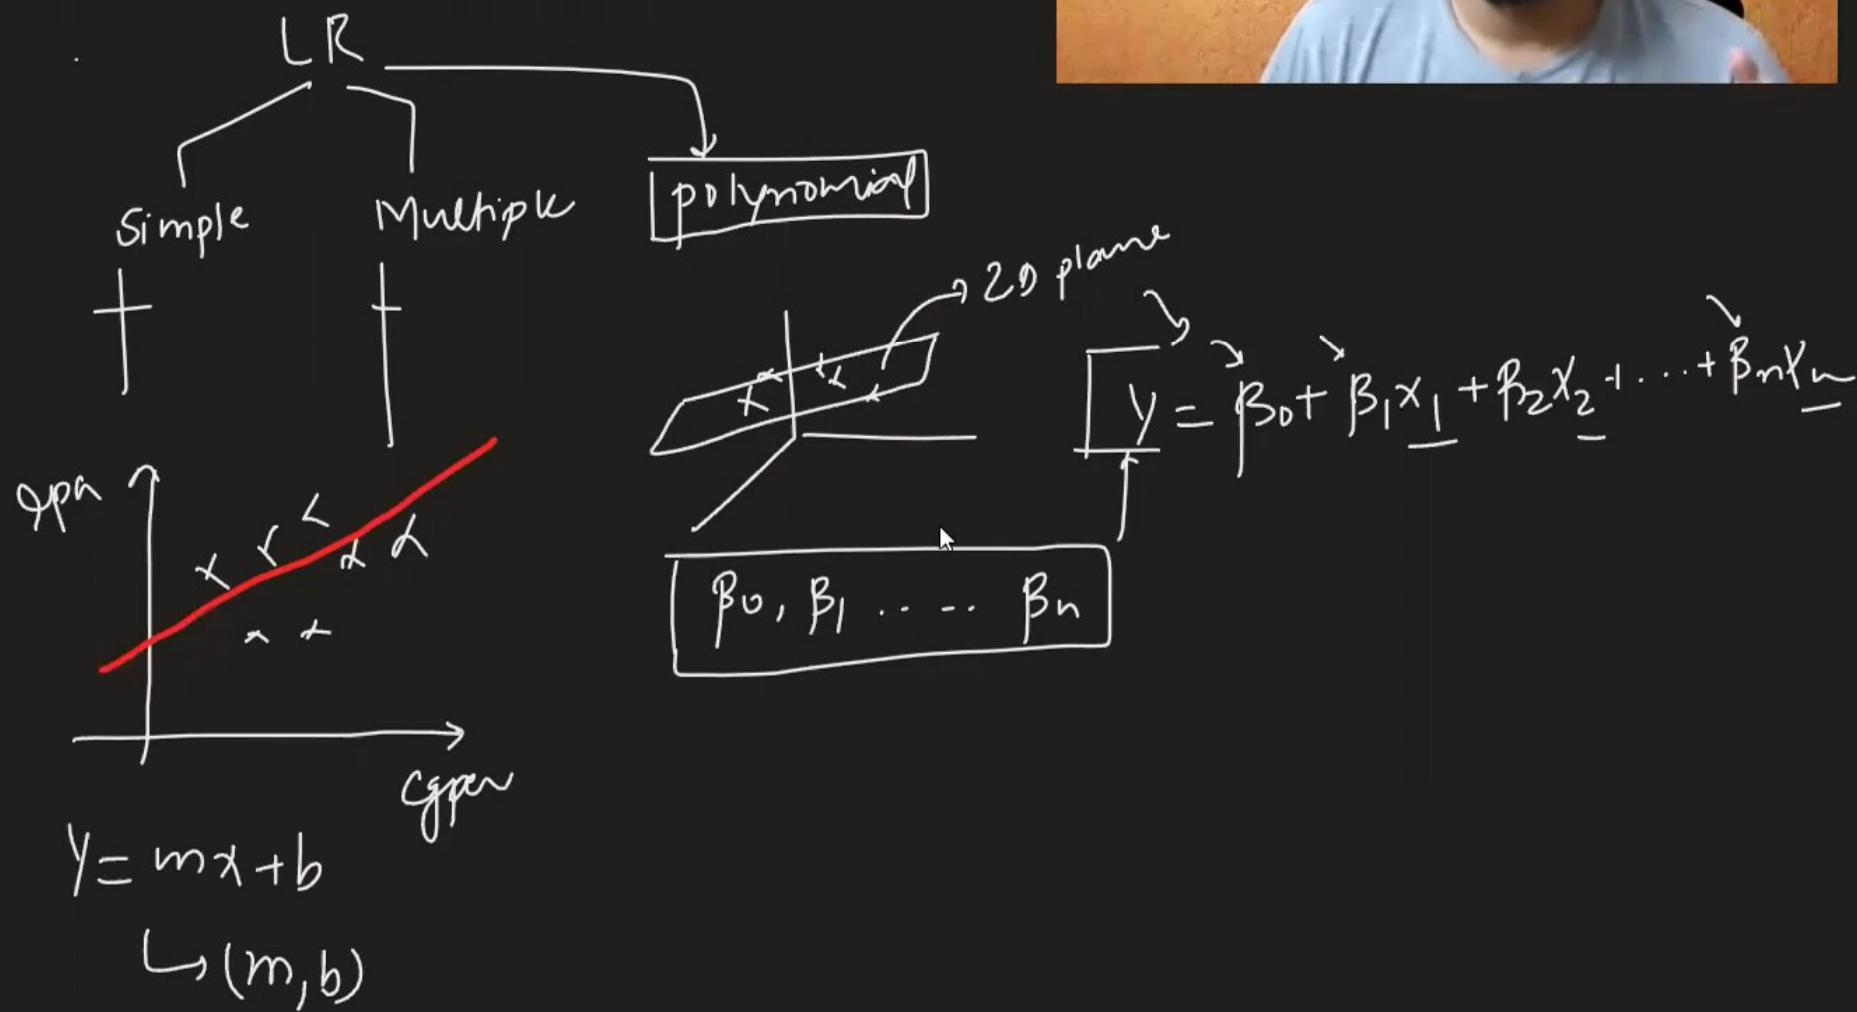 LR
Simple
Multiple
polynomial
2D plane
y = β0 + β1x1 + β2x2 + ... + βnxn
lpa
cgpa
β0, β1 ..... βn
y = mx + b
↳ (m, b)